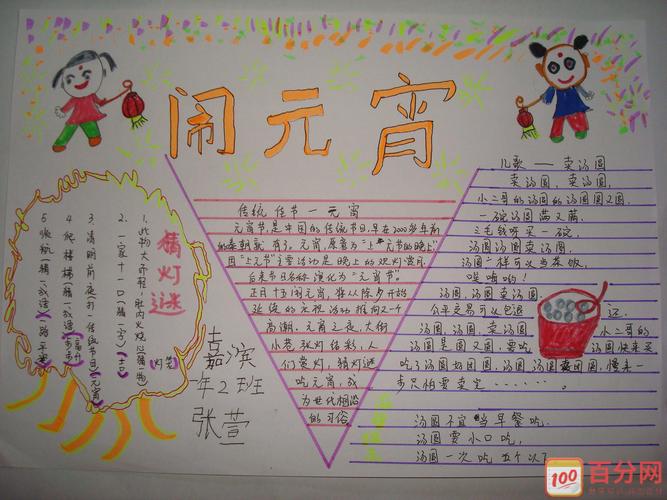 闹元宵
猜灯谜
1.此物大开鞋,肚内火烧心(猜一物)(灯笼)
2.一家十一口(猜一字)(吉)
3.清明前夜(打一传统节日)(元宵)
4.爬楼梯(猜一成语)(步步高升)
5.(猜一成语)一路平
嘉滨
一年2班
张萱
传统佳节一元宵
元宵节,是中国的传统节日,早在2000多年前
的秦朝就有了。元宵,原意为“上元节的晚上”
因“上元节”主要活动是晚上的观灯赏月
后来节日名称演化为“元宵节”。
正月十五闹元宵,将从除夕开始
延续的庆祝活动推向又一个
高潮,元宵之夜,大街
小巷,张灯结彩,人
们赏灯,猜灯谜
吃元宵,成
为世代相沿
的习俗
儿歌——卖汤圆
卖汤圆,卖汤圆,
小二哥的汤圆的汤圆圆又圆
一碗汤圆满又满
三毛钱呀买一碗,
汤圆汤圆卖汤圆
汤圆一样可以当茶饭,
哎嗨哟!
汤圆,汤圆卖汤圆
公平交易可以包退还
汤圆,汤圆,卖汤圆 小二哥的
汤圆是圆又圆,要吃汤圆快来买
吃了汤圆好团圆,汤圆,汤圆卖汤圆,慢来一
步只怕要卖完………
汤圆不宜当早餐吃
汤圆要小口吃,
汤圆一次吃五个以下
100 百分网